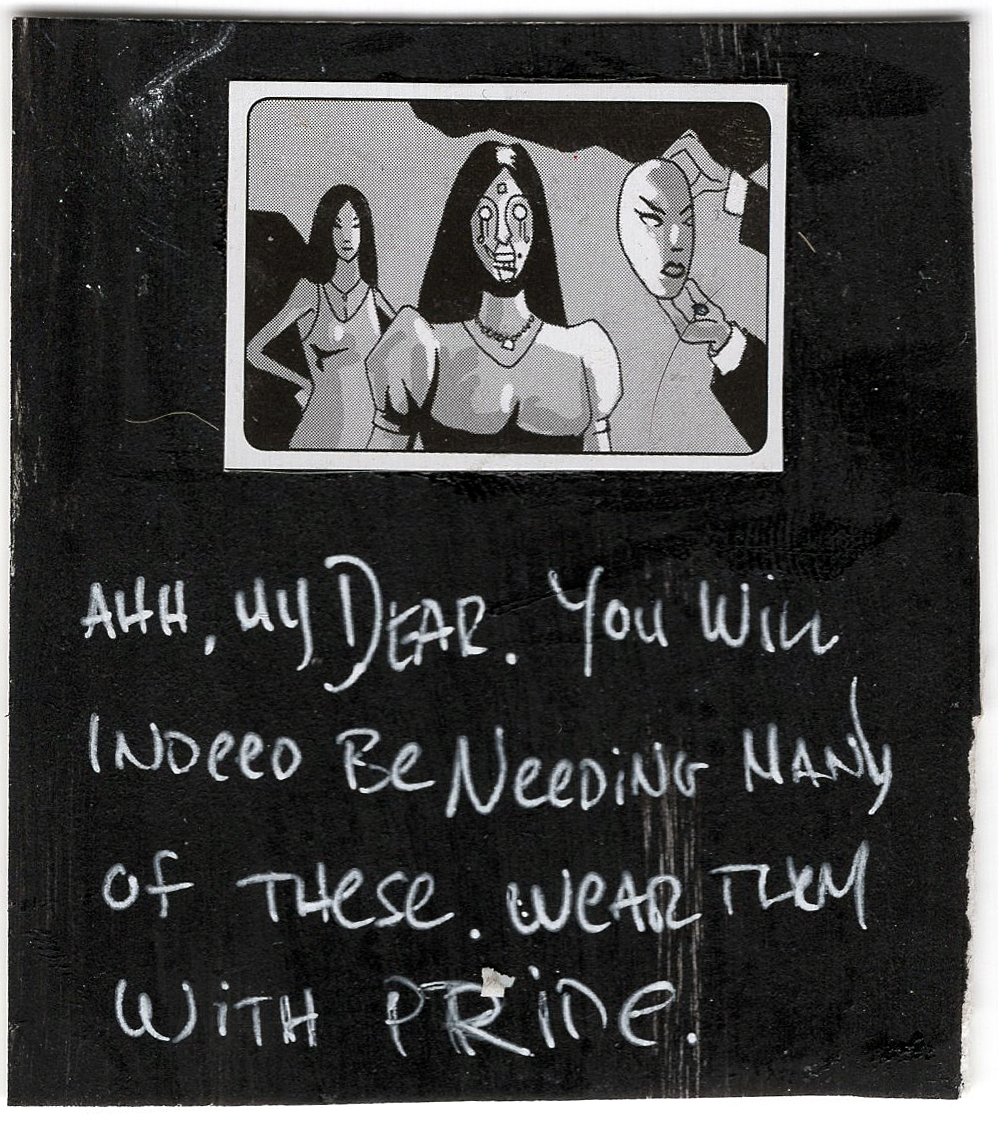 AHH, MY DEAR. YOU WILL
INDEED BE NEEDING MANY
OF THESE. WEAR THEM
WITH PRIDE.